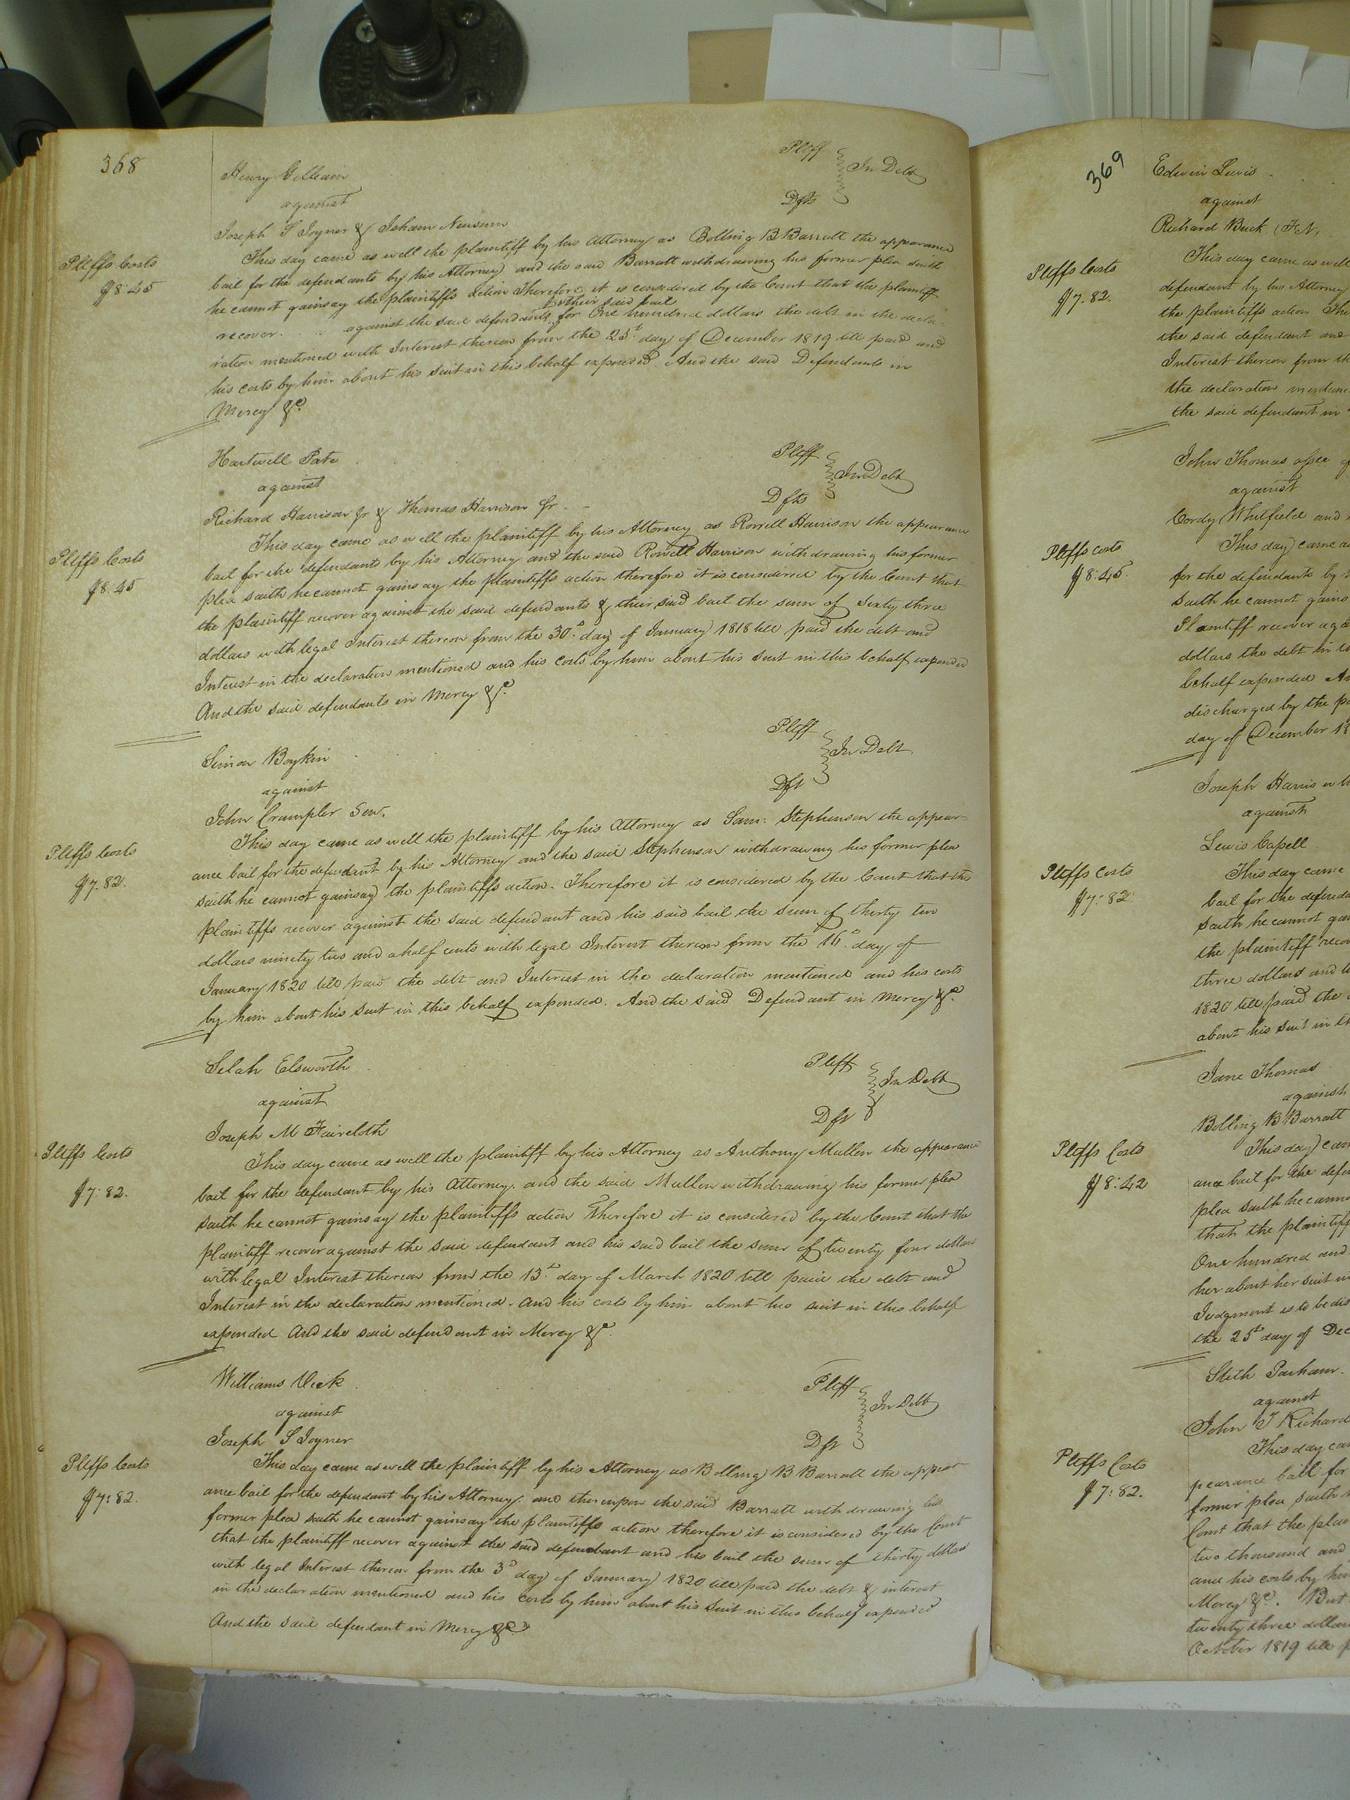 368
Henry Gilliam Pltff
against In Debt
Joseph S Joyner & Isham Newsum Dfts
This day came as well the plaintiff by his Attorney as Bolling B Barrett the appearance
Pltffs Costs
$8:45
bail for the defendants by his Attorney and the said Barrett withdrawing his former plea saith
he cannot gainsay the plaintiffs action Therefore it is considered by the Court that the plaintiff
recover against the said defendants & their said bail for One hundred dollars the debt in the decla-
ration mentioned with Interest thereon from the 25th day of December 1819 till paid and
his costs by him about his suit in this behalf expended And the said Defendants in
Mercy &c
Hartwell Pate Pltff
against In Debt
Richard Harrison Jr & Thomas Harrison Jr Dfts
This day came as well the plaintiff by his Attorney as Rowell Harrison the appearance
Pltffs Costs
$8:45
bail for the defendants by his Attorney and the said Rowell Harrison withdrawing his former
plea saith he cannot gainsay the plaintiffs action therefore it is considered by the Court that
the plaintiff recover against the said defendants & their said bail the sum of Sixty three
dollars with legal Interest thereon from the 30th day of January 1818 till paid the debt and
Interest in the declaration mentioned and his costs by him about his suit in this behalf expended
And the said defendants in Mercy &c
Simon Boykin Pltff
against In Debt
John Crumpler Senr. Dft
This day came as well the plaintiff by his Attorney as Saml. Stephenson the appear-
Pltffs Costs
$7.82.
ance bail for the defendant by his Attorney and the said Stephenson withdrawing his former plea
saith he cannot gainsay the plaintiffs action. Therefore it is considered by the Court that the
plaintiffs recover against the said defendant and his said bail the sum of thirty two
dollars ninety two and a half cents with legal Interest thereon from the 16th day of
January 1820 till paid the debt and Interest in the declaration mentioned and his costs
by him about his suit in this behalf expended. And the said Defendant in Mercy &c.
Selah Elsworth Pltff
against In Debt
Joseph M Faircloth Dft
This day came as well the plaintiff by his Attorney as Anthony Mullen the appearance
Pltffs Costs
$7:82.
bail for the defendant by his Attorney. and the said Mullen withdrawing his former plea
saith he cannot gainsay the plaintiffs action Therefore it is considered by the Court that the
plaintiff recover against the said defendant and his said bail the sum of twenty four dollars
with legal Interest thereon from the 13th day of March 1820 till paid the debt and
Interest in the declaration mentioned. And his costs by him about his suit in this behalf
expended And the said defendant in Mercy &c
Williams Vick Pltff
against In Debt
Joseph S Joyner Dft
This day came as well the plaintiff by his Attorney as Bolling B Barrett the appear
Pltffs Costs
$7:82.
ance bail for the defendant by his Attorney. and thereupon the said Barrett withdrawing his
former plea saith he cannot gainsay the plaintiffs action therefore it is considered by the Court
that the plaintiff recover against the said defendant and his bail the sum of thirty dollars
with legal Interest thereon from the 3d day of January 1820 till paid the debt & interest
in the declaration mentioned and his costs by him about his Suit in this behalf expended
And the said defendant in Mercy &c
369
Edwin Lewis
against
Richard Buck (F.N.
This day came as well
Pltffs Costs
$7.82.
defendant by his Attorney
the plaintiffs action The
the said defendant and
Interest thereon from th
the declaration mention
the said defendant in
John Thomas assee
against
Cordy Whitfield and
Pltffs Costs
$8:45.
This day came a
for the defendants by
saith he cannot gains
Plaintiff recover aga
dollars the debt in t
behalf expended An
discharged by the pa
day of December 18
Joseph Harris
against
Lewis Capell
Pltffs Costs
$7:82
This day came
bail for the defenda
saith he cannot gai
the plaintiff reco
three dollars and
1820 till paid the
about his suit in th
Jane Thomas
against
Bolling B Barrett
Pltffs Costs
$8:42
This day cam
ance bail for the defe
plea saith he canno
that the plaintiff
One hundred and
her about her suit in
Judgment is to be dis
the 25th day of Dec
Stith Parham.
against
John T Richard
Pltffs Costs
$7:82.
This day ca
pearance bail for
former plea saith
Court that the plai
two thousand and
and his costs by hi
Mercy &c. But
twenty three dollar
October 1819 till p